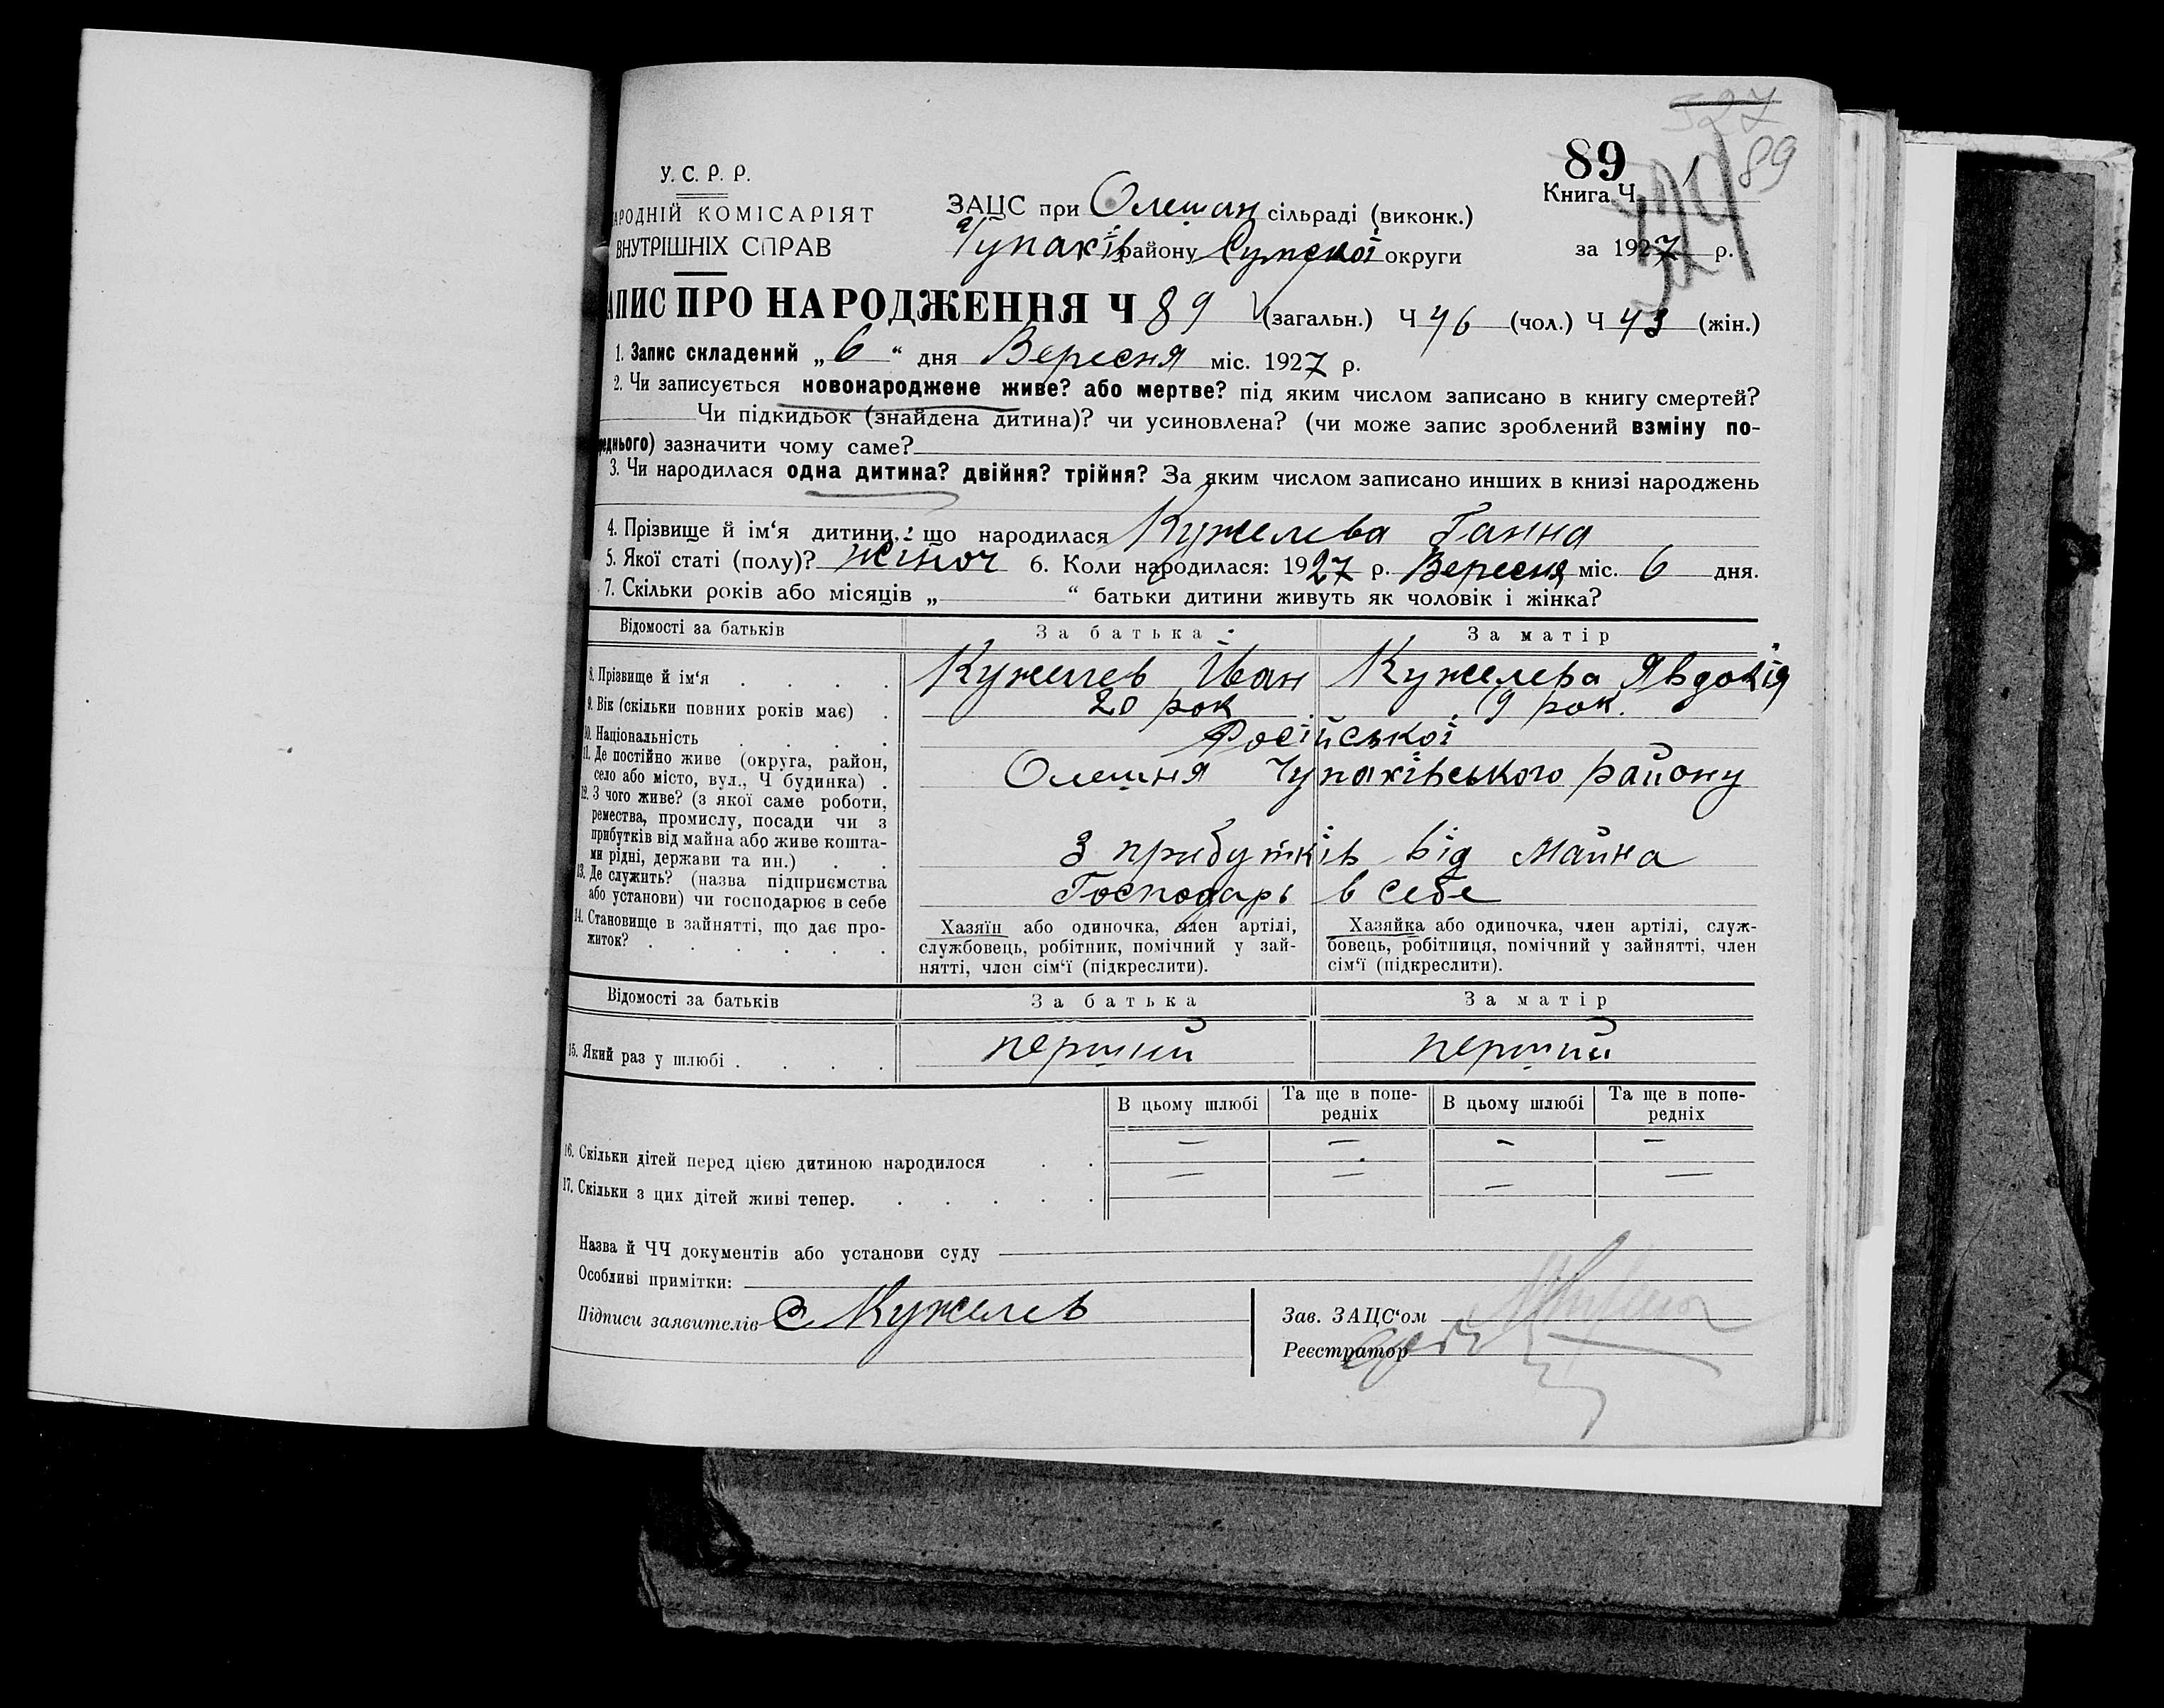 327
89
89
У. С. Р. Р.
Книга Ч. 1
АРОДНІЙ КОМІСАРІЯТ
ЗАЦС при Олешан сільраді (виконк.)
ВНУТРІШНІХ СПРАВ
Чупаків району Сумської округи
за 1927 р.
АПИС ПРО НАРОДЖЕННЯ Ч 89 (загальн.) Ч 46 (чол.) Ч 43 (жін.)
1. Запис складений „ 6 “ дня Вересня міс. 1927 р.
2. Чи записується новонароджене живе? або мертве? під яким числом записано в книгу смертей?
Чи підкидьок (знайдена дитина)? чи усиновлена? (чи може запис зроблений взміну по-
реднього) зазначити чому саме?
3. Чи народилася одна дитина? двійня? трійня? За яким числом записано инших в книзі народжень
4. Прізвище й ім‘я дитини, що народилася Кужелева Ганна
5. Якої статі (полу)? жіноч 6. Коли народилася: 1927 р. Вересня міс. 6 дня.
7. Скільки років або місяців „ “ батьки дитини живуть як чоловік і жінка?
Відомості за батьків За батька За матір
8. Прізвище й ім‘я Кужелев Іван Кужелева Явдокія
9. Вік (скільки повних років має) 20 рок 19 рок.
10. Національність Російської
11. Де постійно живе (округа, район,
село або місто, вул., Ч будинка) Олешня Чупахівського району
12. З чого живе? (з якої саме роботи,
ремества, промислу, посади чи з
прибутків від майна або живе кошта-
ми рідні, держави та ин.) З прибутків від Майна
13. Де служить? (назва підприємства
або установи) чи господарює в себе Господарь в себе
14. Становище в зайнятті, що дає про-
житок?
Хазяїн або одиночка, член артілі,
службовець, робітник, помічний у зай-
нятті, член сім‘ї (підкреслити).
Хазяйка або одиночка, член артілі, служ-
бовець, робітниця, помічний у зайнятті, член
сім‘ї (підкреслити).
Відомості за батьків За батька За матір
15. Який раз у шлюбі перший перший
В цьому шлюбі Та ще в попе-
редніх В цьому шлюбі Та ще в попе-
редніх
16. Скільки дітей перед цією дитиною народилося — — — —
17. Скільки з цих дітей живі тепер. — — — —
Назва й ЧЧ документів або установи суду
Особливі примітки:
Підписи заявителів Кужелев
Зав. ЗАЦС‘ом
Реєстратор